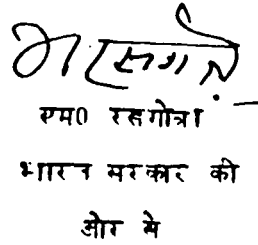 एम० रसगोत्रा
भारत सरकार की
ओर से